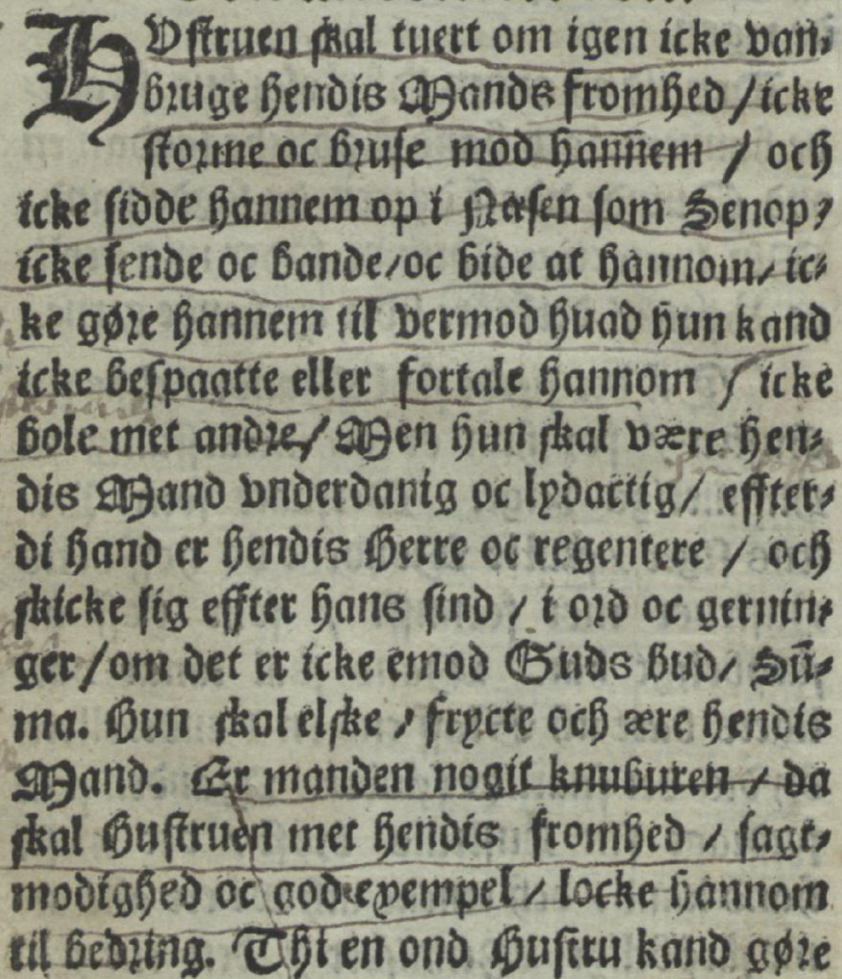 HVstruen skal tuert om igen icke van⸗
bruge hendis Mands fromhed / icke
storme oc bruse mod hannem / och
icke sidde hannem op i Næsen som Senop /
icke sende oc bande / oc bide at hannom / ic⸗
ke gøre hannem til vermod huad hun kand
icke bespaatte eller fortale hannom / icke
bole met andre / Men hun skal være hen⸗
dis Mand vnderdanig oc lydactig / effter⸗
di hand er hendis Herre oc regentere / och
skicke sig effter hans sind / i ord oc gernin⸗
ger / om det er icke emod Guds bud / Sū⸗
ma. Hun skal elske / frycte och ære hendis
Mand. Er manden nogit knuburen / da
skal Hustruen met hendis fromhed / sagt⸗
modighed oc god exempel / locke hannom
til bedring. Thi en ond Hustru kand gøre